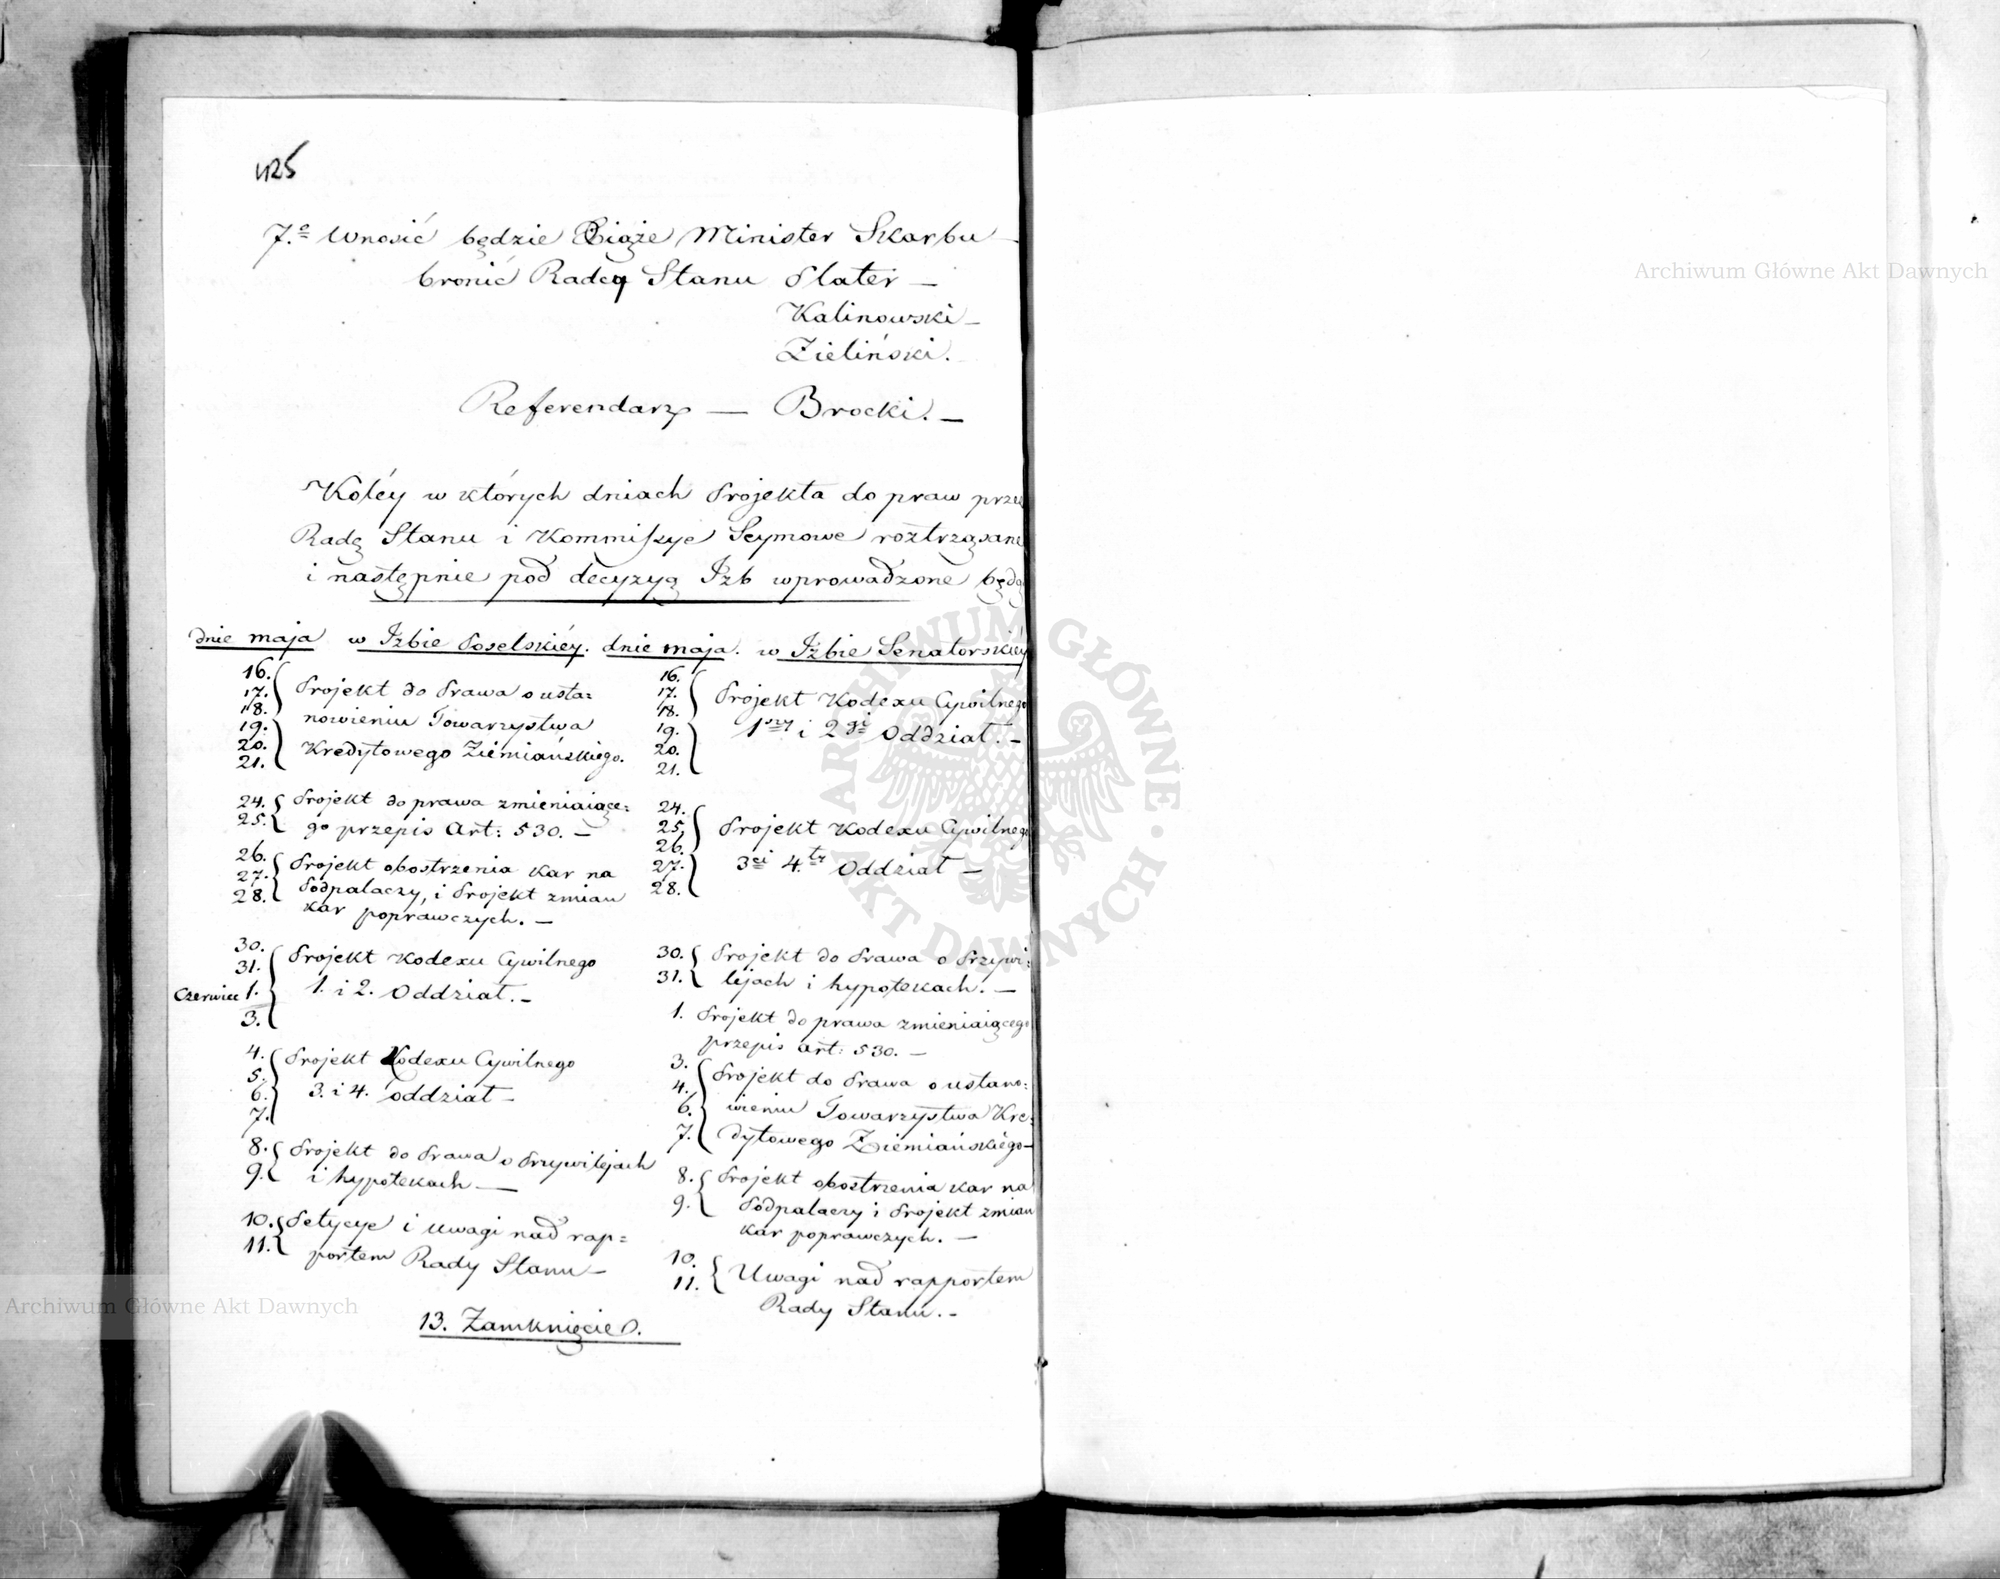 425
7.º Wnosić będzie Xiąże Minister Skarbu
bronić Radcy Stanu Plater —
Kalinowski —
Zieliński.
Referendarz — Brocki. —
Koléy w których dniach Projekta do praw prze
Radę Stanu i Kommissye Seymowe roztrząsane
i następnie pod decyzyą Izb wprowadzone będą
dnie maja w Izbie Poselskiéy.
16.
17.
18.
19.
20.
21.
Projekt do Prawa o usta=
nowieniu Towarzystwa
Kredytowego Ziemiańskiego.
24.
25.
Projekt do prawa zmieniaiące=
go przepis Art: 530. —
26.
27.
28.
Projekt obostrzenia kar na
Podpalaczy, i Projekt zmian
kar poprawczych. —
30.
31.
Czerwiec 1.
3.
Projekt Kodexu Cywilnego
1. i 2. Oddział. —
4.
5.
6.
7.
Projekt Kodexu Cywilnego
3. i 4. oddział —
8.
9.
Projekt do Prawa o Przywilejach
i hypotekach —
10.
11.
Petycye i Uwagi nad rap=
portem Rady Stanu —
dnie maja. w Izbie Senatorskiéy
16.
17.
18.
19.
20.
21.
Projekt Kodexu Cywilnego
1szy i 2gi Oddział. —
24.
25.
26.
27.
28.
Projekt Kodexu Cywilnego
3ci 4.ty Oddział —
30.
31.
Projekt do Prawa o Przywi=
lejach i hypotekach. —
1. Projekt do prawa zmieniaiącego
przepis art: 530. —
3.
4.
6.
7.
Projekt do Prawa o ustano=
wieniu Towarzystwa Kre=
dytowego Ziemiańskiégo —
8.
9.
Projekt obostrzenia kar na
Podpalaczy i Projekt zmian
kar poprawczych. —
10.
11.
Uwagi nad rapportem
Rady Stanu. —
13. Zamknięcie.
Archiwum Główne Akt Dawnych
ARCHIWUM GŁÓWNE AKT DAWNYCH
Archiwum Główne Akt Dawnych